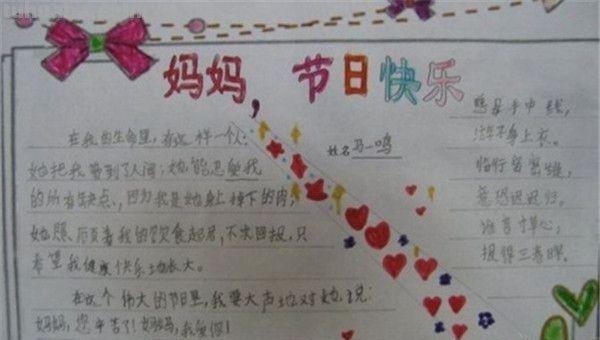 妈妈，节日快乐
姓名马一鸣
在我的生命里，有这样一个人：
她把我带到了人间；她能忍受我
的所有缺点、因为我是她身上掉下的肉，
她照顾着我的饮食起居，不求回报，只
希望我健康快乐地长大。
在这个伟大的节日里，我要大声地对她说：
妈妈，您辛苦了！妈妈，我爱你！
慈母手中线，
游子身上衣。
临行密密缝，
意恐迟迟归。
谁言寸草心，
报得三春晖。